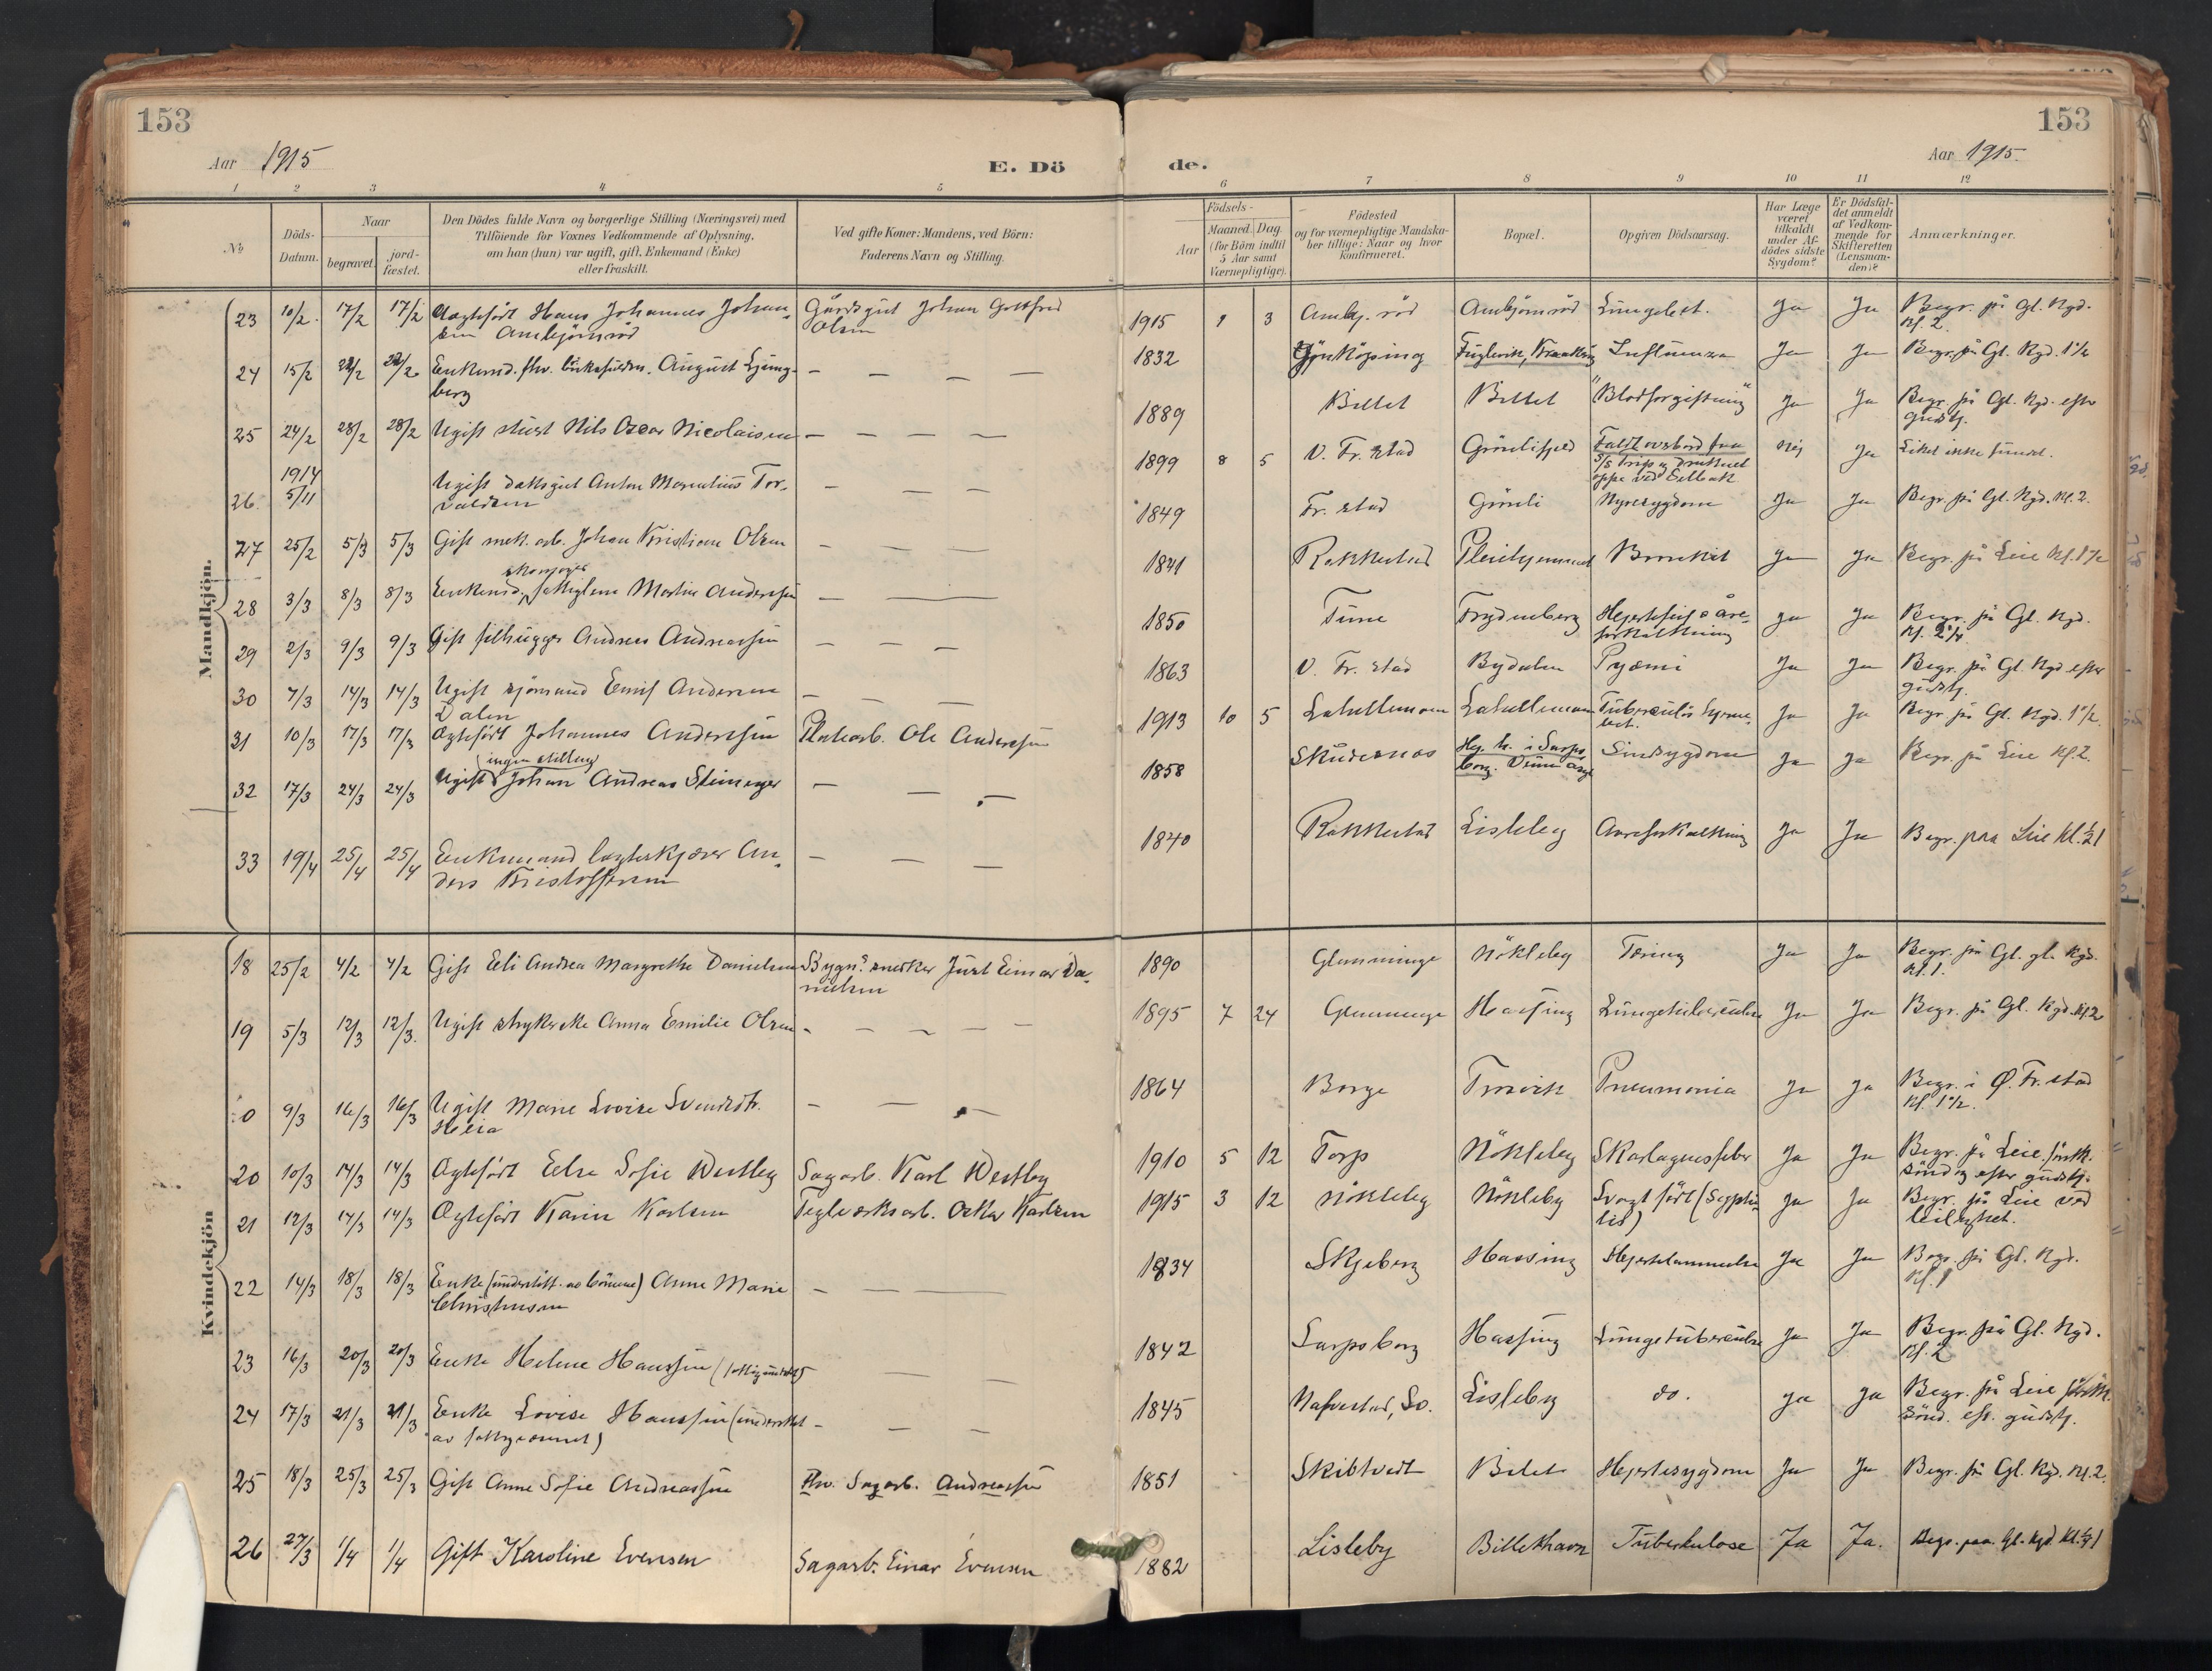 153
153
Aar 1915
E. Dö de.
Aar 1915.
1 2 3 4 5 6 7 8 9 10 11 12
No
Döds-Datum.
Naar
begravet.
jord-fæstet.
Den Dödes fulde Navn og borgerlige Stilling (Næringsvei) med
Tilföiende for Voxnes Vedkommende af Oplysning,
om han (hun) var ugift, gift, Enkemand (Enke)
eller fraskilt.
Ved gifte Koner: Mandens, ved Börn:
Faderens Navn og Stilling.
Födsels-
Aar
Maaned. Dag.
(for Börn indtil
5 Aar samt
Værnepligtige).
Födested
og for værnepligtige Mandska-
ber tillige: Naar og hvor
konfirmeret.
Bopæl.
Opgiven Dödsaarsag.
Har Læge
været
tilkaldt
under Af-
dödes sidste
Sygdom?
Er Dödsfal-
det anmeldt
af Vedkom-
mende for
Skifteretten
(Lensman-
den)?
Anmærkninger.
Mandkjön.
23 10/2. 17/2 17/2 Ægteført Hans Johannes Johan-
sen Ambjörnröd
Gårdsgut Johan Gottfred
Olsen
1915 1 3 Ambj. röd Ambjörnröd Lungebet. Ja Ja Begr. på Gl. Kgd.
Kl. 2.
24 15/2 22/2 22/2 Enkemd. fhv. August Ljung-
berg
1832 Jönköping Influenza Ja Ja Begr. på Gl. Kgd. 1½
25 24/2 28/2 28/2 Ugift stuert Nils Oscar Nicolaisen
1889 Billet Billet "Blodforgiftning" Ja Ja Begr. på Gl. Kgd. efter
gudstj.
26. 1914
5/11 Ugift dæksgut Anton Marentius Tor-
valdsen
1899 8 5 V. Fr. stad Faldt overbord fra
S/S druknet
oppe ved Sellbak
Nej Ja Liket ikke fundet.
27 25/2 5/3 5/3 Gift mek. arb. Johan Kristian Olsen
1849 Fr. stad Grönli Nyresygdom Ja Ja Begr. på Gl. Kgd. Kl. 2.
28 3/3 8/3 8/3 Enkemd, fattiglem Martin Andersen
1841 Rakkestad Pleiehjemmet Bronkit Ja Ja Begr. på Leie Kl. 1½
29 2/3 9/3 9/3 Gift filhugger Andreas Andreassen
1850 Tune Frydenberg Hjertefeil o åre-
forkalkning
Ja Ja Begr. på Gl. Kgd.
30 7/3 14/3 14/3 Ugift sjömand Emil Andersen
Dalen
1863 V. Fr. stad Bydalen Pyæmi Ja Ja Begr. på Gl. Kgd efter
gudstj.
31 10/3 17/3 17/3 Ægteført Johannes Anderssen
Platearb. Ole Anderssen
1913 10 5 Labellemoen Labellemoen Tuberculös
Ja Ja Begr. på Gl. Kgd. 1½.
32 17/3 24/3 24/3 (ingen stilling)
Ugift Johan Andreas Steinseger
1858 Skudesnæs Sindsygdom Ja Ja Begr. på Leie Kl. 2.
33 19/4 25/4 25/4 Enkemand lægterskjærer An-
ders Kristoffersen
1840 Rakkestad Lisleby Aareforkalkning Ja Ja Begr. paa Leie Kl. ½1
Kvindekjön
18 25/2 4/2 4/2 Gift Eli Andrea Margrethe Danielsen
Bygn? snekker Just Einar Da-
nielsen
1890 Glemminge Nökleby Tæring Ja Ja Begr. på Gl. gl. Kgd.
Kl. 1.
19 5/3 12/3 12/3. Ugift strykerske Anna Emilie Olsen
1895 7 24 Glemminge Hassing Lungetuberculose Ja Ja Begr. på Gl. Kgd. Kl 2
0 9/3 16/3 16/3 Ugift Marie Lovise Svendsdtr.
Heia
1864 Borge Trosvik Pneumonia Ja Ja Begr. i Ø. Fr. stad
Kl. 1½.
20 10/3 14/3 14/3 Ægteført Else Sofie Westby
Sagarb. Karl Westby
1910 5 12 Torp Nökleby Skarlagensfeber Ja Ja Begr. på Leie, förstk.
söndag efter gudstj.
21 12/3 14/3 14/3 Ægteført Karin Karlsen
Teglverksarb. Oskar Karlsen
1915 3 12 Nökleby Nökleby Svagt født (Syphi-
lis)
Ja Ja Begr. på Leie ved
leilighet.
22 14/3 18/3 18/3 Enke (understött. av börnene) Anne Marie
Christensen
1834 Skjeberg Hassing Hjertelammelse Ja Ja Begr. på Gl. Kgd.
Kl. 1
23 16/3 20/3 20/3 Enke Helene Hanssen
1842 Sarpsborg Hassing Lungetuberculose Ja Ja Begr. på Gl. Kgd.
Kl. 2
24 17/3 21/3 21/3 Enke Lovise Hanssen (understöt
av fattigvæsenet)
1845 Nafverstad, Sv. Lisleby do. Ja Ja Begr. på Leie förstk.
sönd. eft. gudstj.
25 18/3 25/3 25/3 Gift Anne Sofie Andreassen
Fhv. Sagarb. Andreassen
1851 Skibtvedt Bilet Hjertesygdom Ja Ja Begr. på Gl. Kgd. Kl. 2.
26 27/3 1/4 1/4 Gift Karoline Evensen
Sagarb. Einar Evensen
1882 Lisleby Billethavn Tuberkulose Ja Ja. Begr. paa Gl. Kgd. Kl. ½1